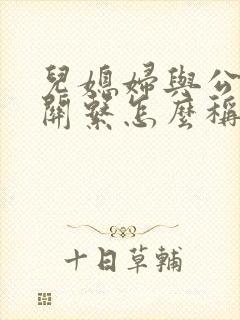 兒媳婦與公
關繫怎麼稱
十日草輔